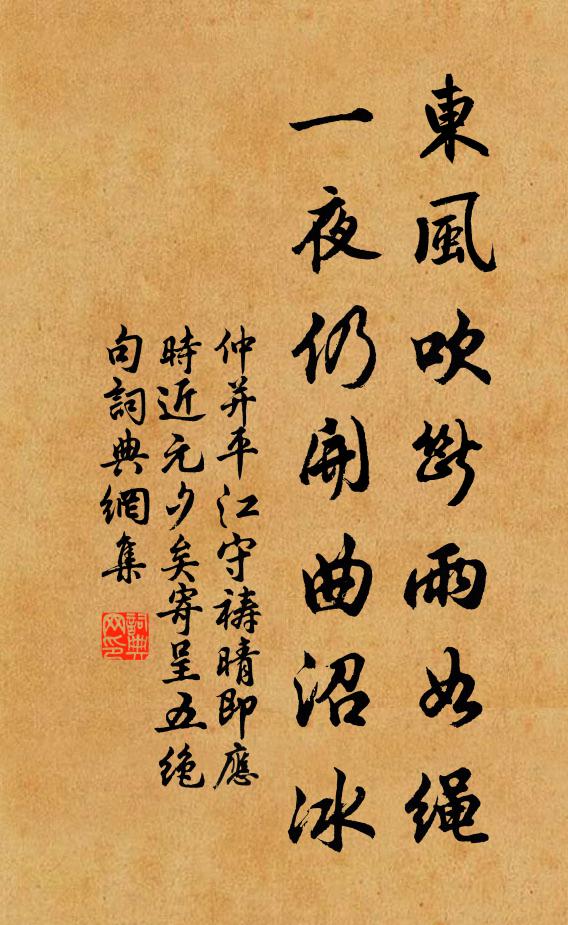 東風吹斷雨如繩
一夜仍開曲沼冰
仲并平江守禱晴即應
時近元夕矣寄呈五绝
句詞典網集
詞典网印